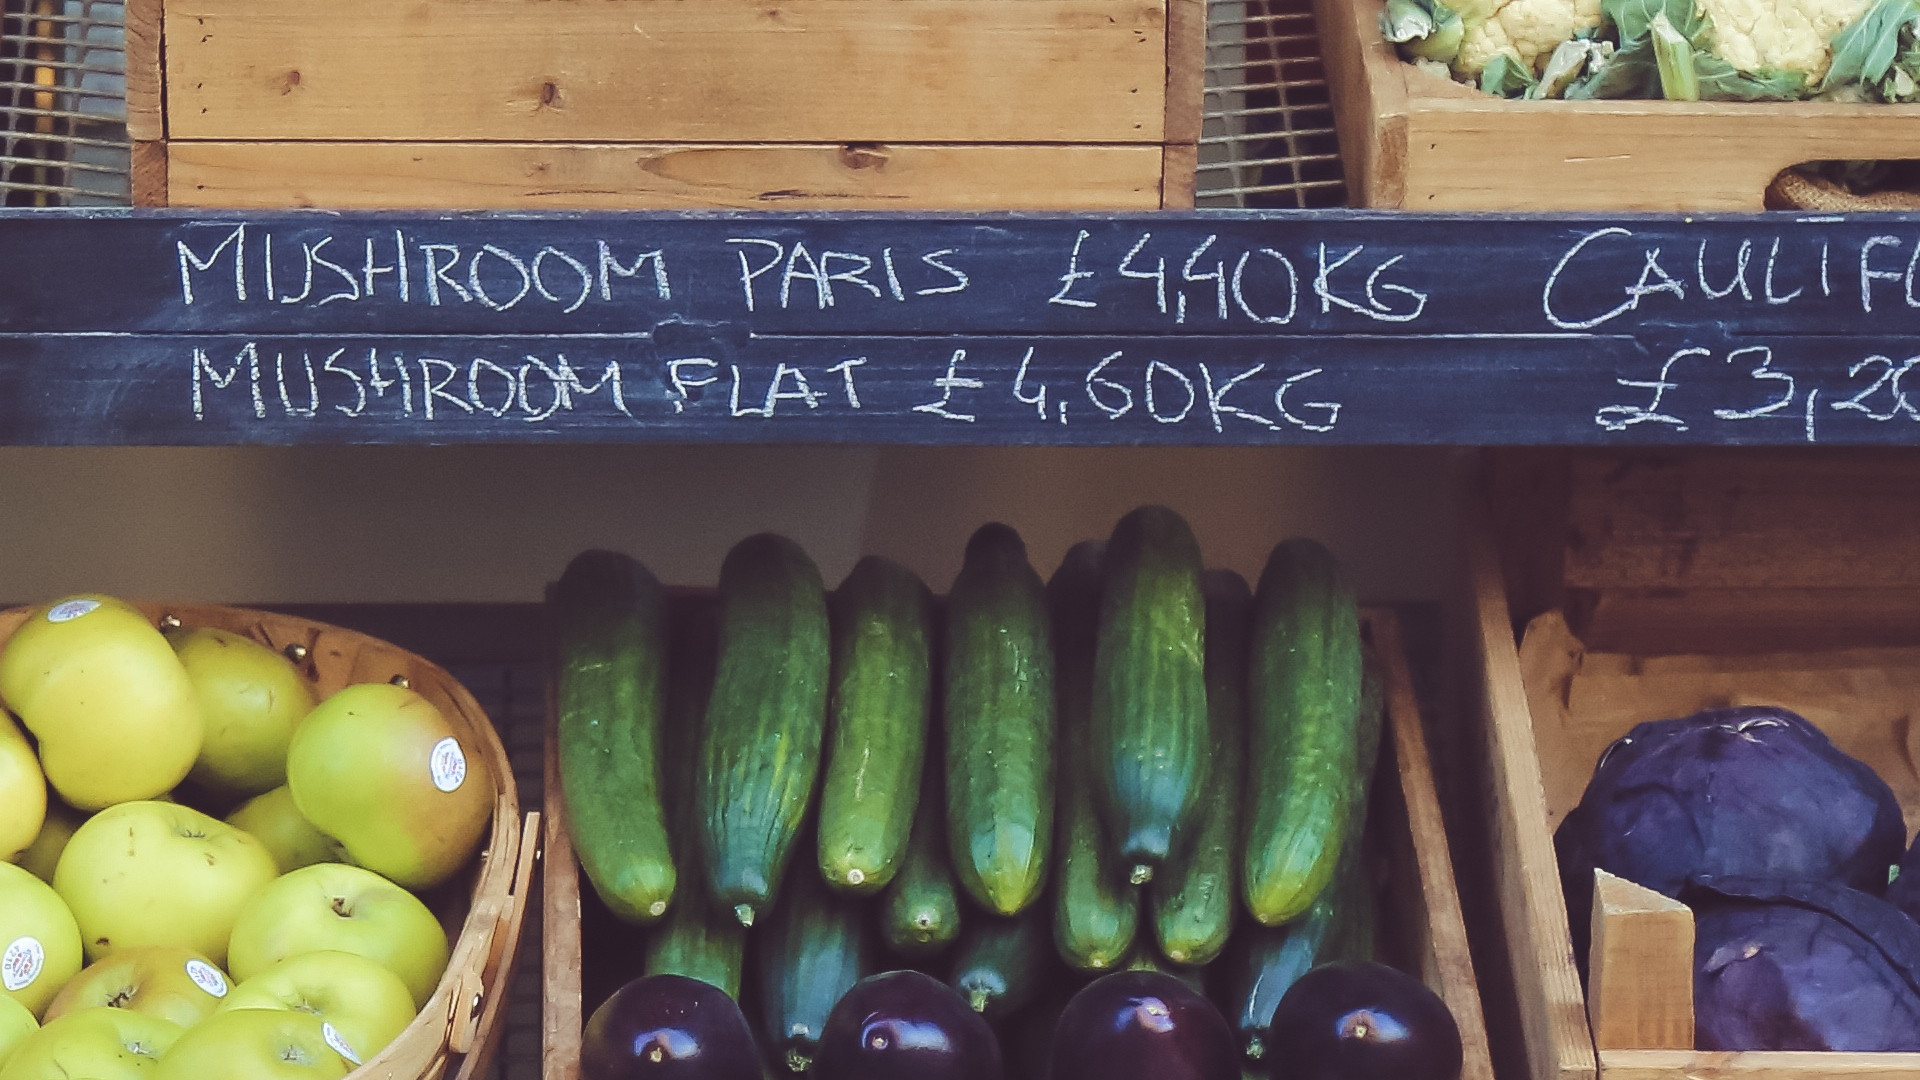 MUSHROOM PARIS £4,40KG
MUSHROOM FLAT £4,60KG
CAULIFL
£3,20